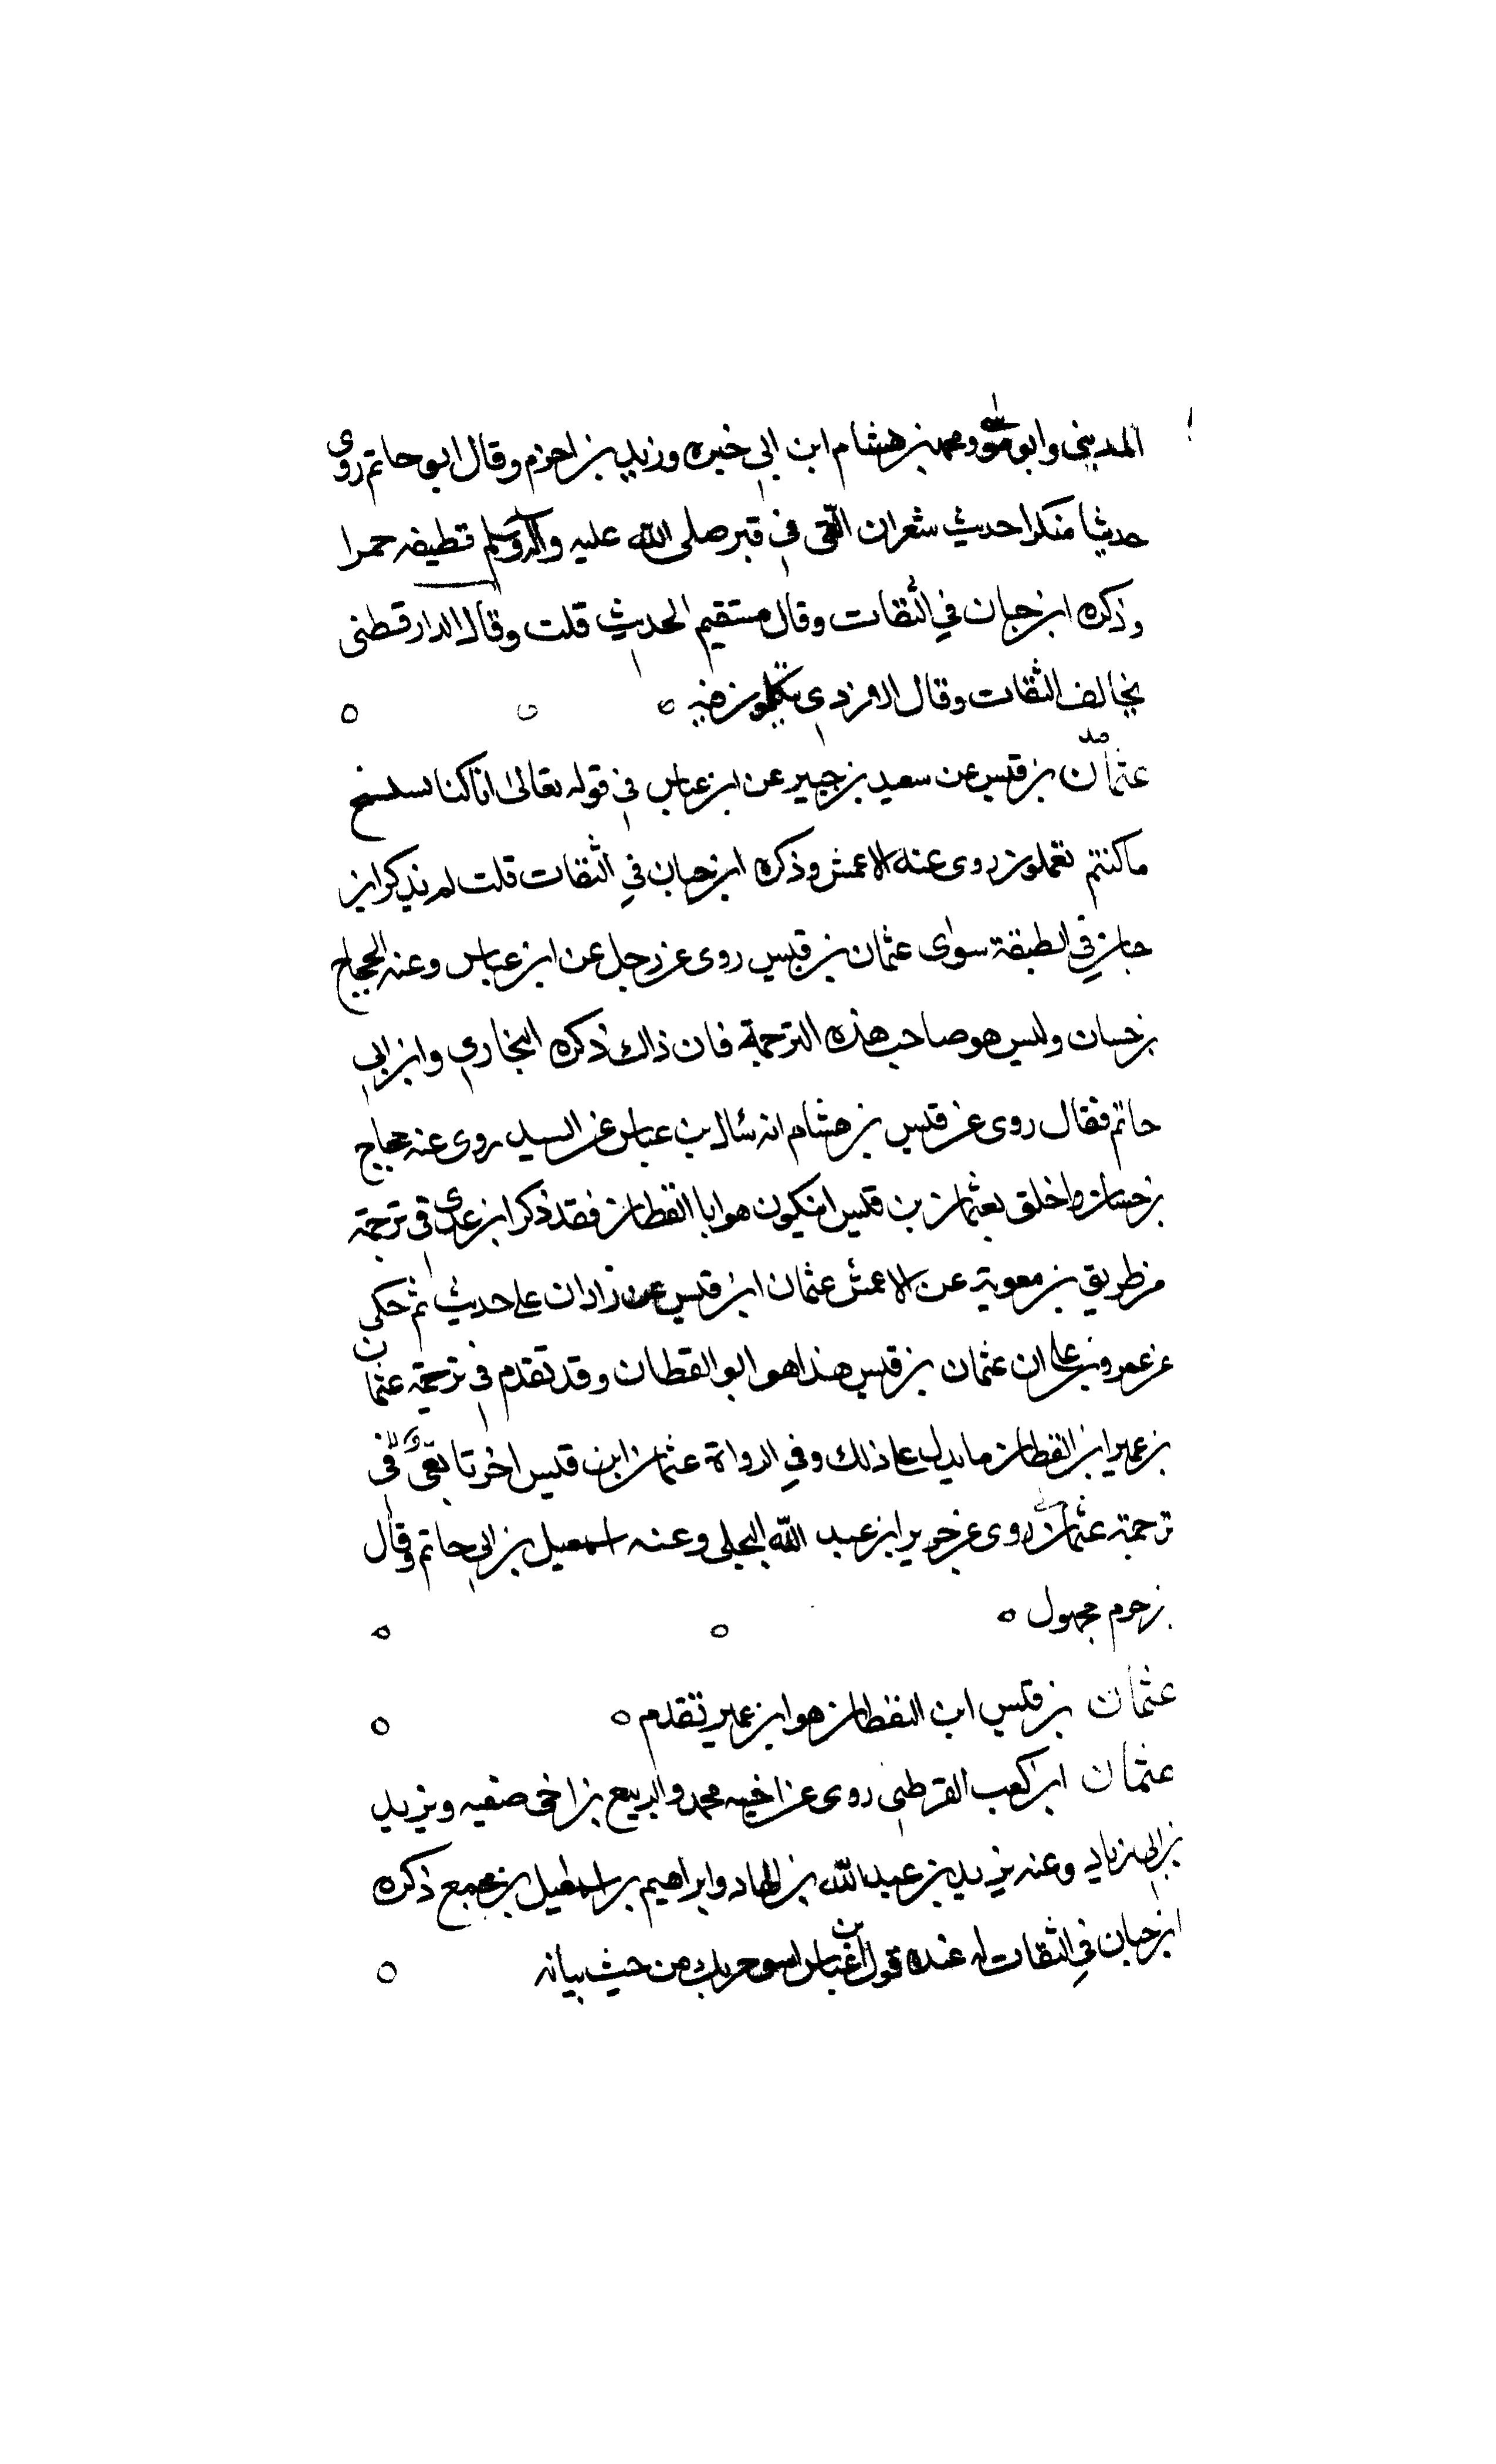 المديني وابو موسى ومحمد بن هشام ابن ابي خيره وزيد بن اخزم وقال ابو حاتم روى
حديثا منكرا حديث شعران القى في قبر صلى الله عليه وآله وسلم قطيفه حمرا
وذكره ابن حبان في الثقات وقال مستقيم الحديث قلت وقال الدارقطنى
يخالف الثقات وقال الازدي يتكلمون فيه
عثمان بن قيس عن سعيد بن جبير عن ابن عباس في قوله تعالى انا كنا نستنسخ
ما كنتم تعملون روى عنه الاعمش وذكره ابن حبان في الثقات قلت لم يذكر ابن
حبان في الطبقة سواى عثمان بن قيس روى عن رجل عن ابن عباس وعنه الحجاج
بن حسان وليس هو صاحب هذه الترجمة فان ذالك ذكره البخاري وابن ابي
حاتم فقال روى عن قيس بن هشام انه سال بن عباس عن السيد روى عنه حجاج
بن حسان واخلق بعثمان بن قيس ان يكون هو ابا اليقظان فقد ذكر ابن عدى في ترجمته
من طريق بن معوية عن الاعمش عثمان ابن قيس عن زادان على حديث ثم حكى
عن عمرو بن على ان عثمان بن قيس هذا هو ابو القطان وقد تقدم في ترجمة عثمان
بن عمير ابن القطان ما يدل على ذلك وفي الرواة عثمان ابن قيس اخر تابعى في
ترجمته عثمان روى عن جرير ابن عبد الله البجلى وعنه اسمعيل بن ابي حاتم وقال
بن حرم مجهول
عثمان بن قيس ابن اليقظان هو ابن عمير تقدم
عثمان ابن كعب القرظي روى عن اخيه محمد والربيع بن اخى صفيه ويزيد
بن ابي زياد وعنه يزيد بن عبد الله بن الهاد وابراهيم بن اسمعيل بن مجمع ذكره
ابن حبان في الثقات له عنده قول بن عباس من حيث بيانه